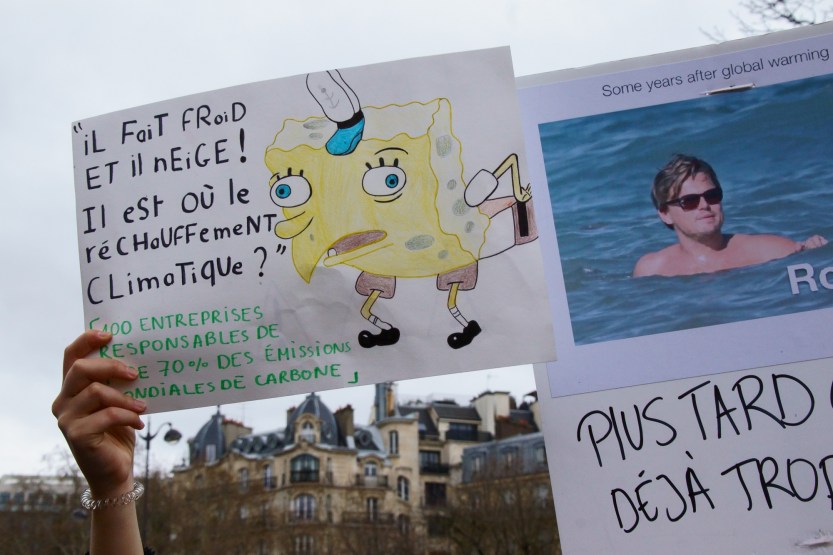 "iL FaiT FRoiD
ET il nEiGE!
Il eST OÙ le
réCHaUFFemeNT
CLimaTiQUe ?"
100 ENTREPRISES
RESPONSABLES DE
70% DES ÉMISSIONS
DE CARBONE
Some years after global warming
PlUS TARD
DÉJÀ TROP